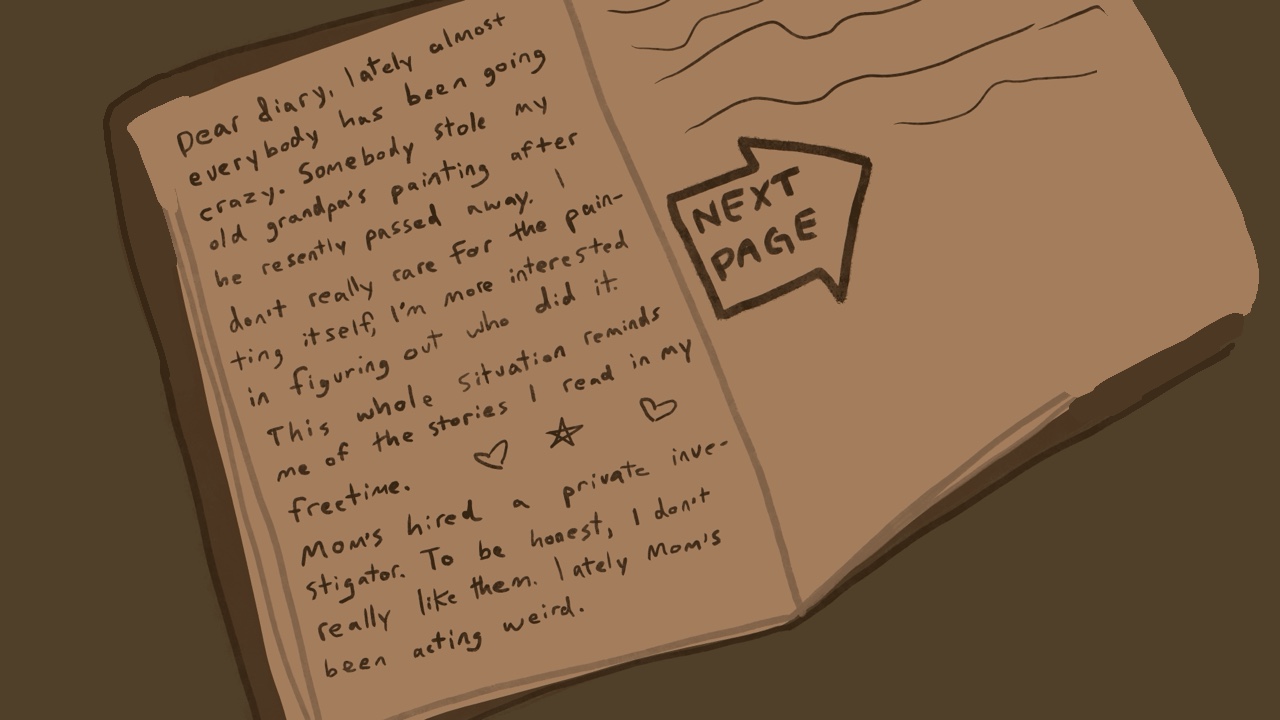 Dear diary, lately almost
everybody has been going
crazy. Somebody stole my
old grandpa's painting after
he resently passed away. I
don't really care for the pain-
ting itself, I'm more interested
in figuring out who did it.
This whole situation reminds
me of the stories I read in my
freetime.
Mom's hired a private inve-
stigator. To be honest, I don't
really like them. lately Mom's
been acting weird.
NEXT
PAGE